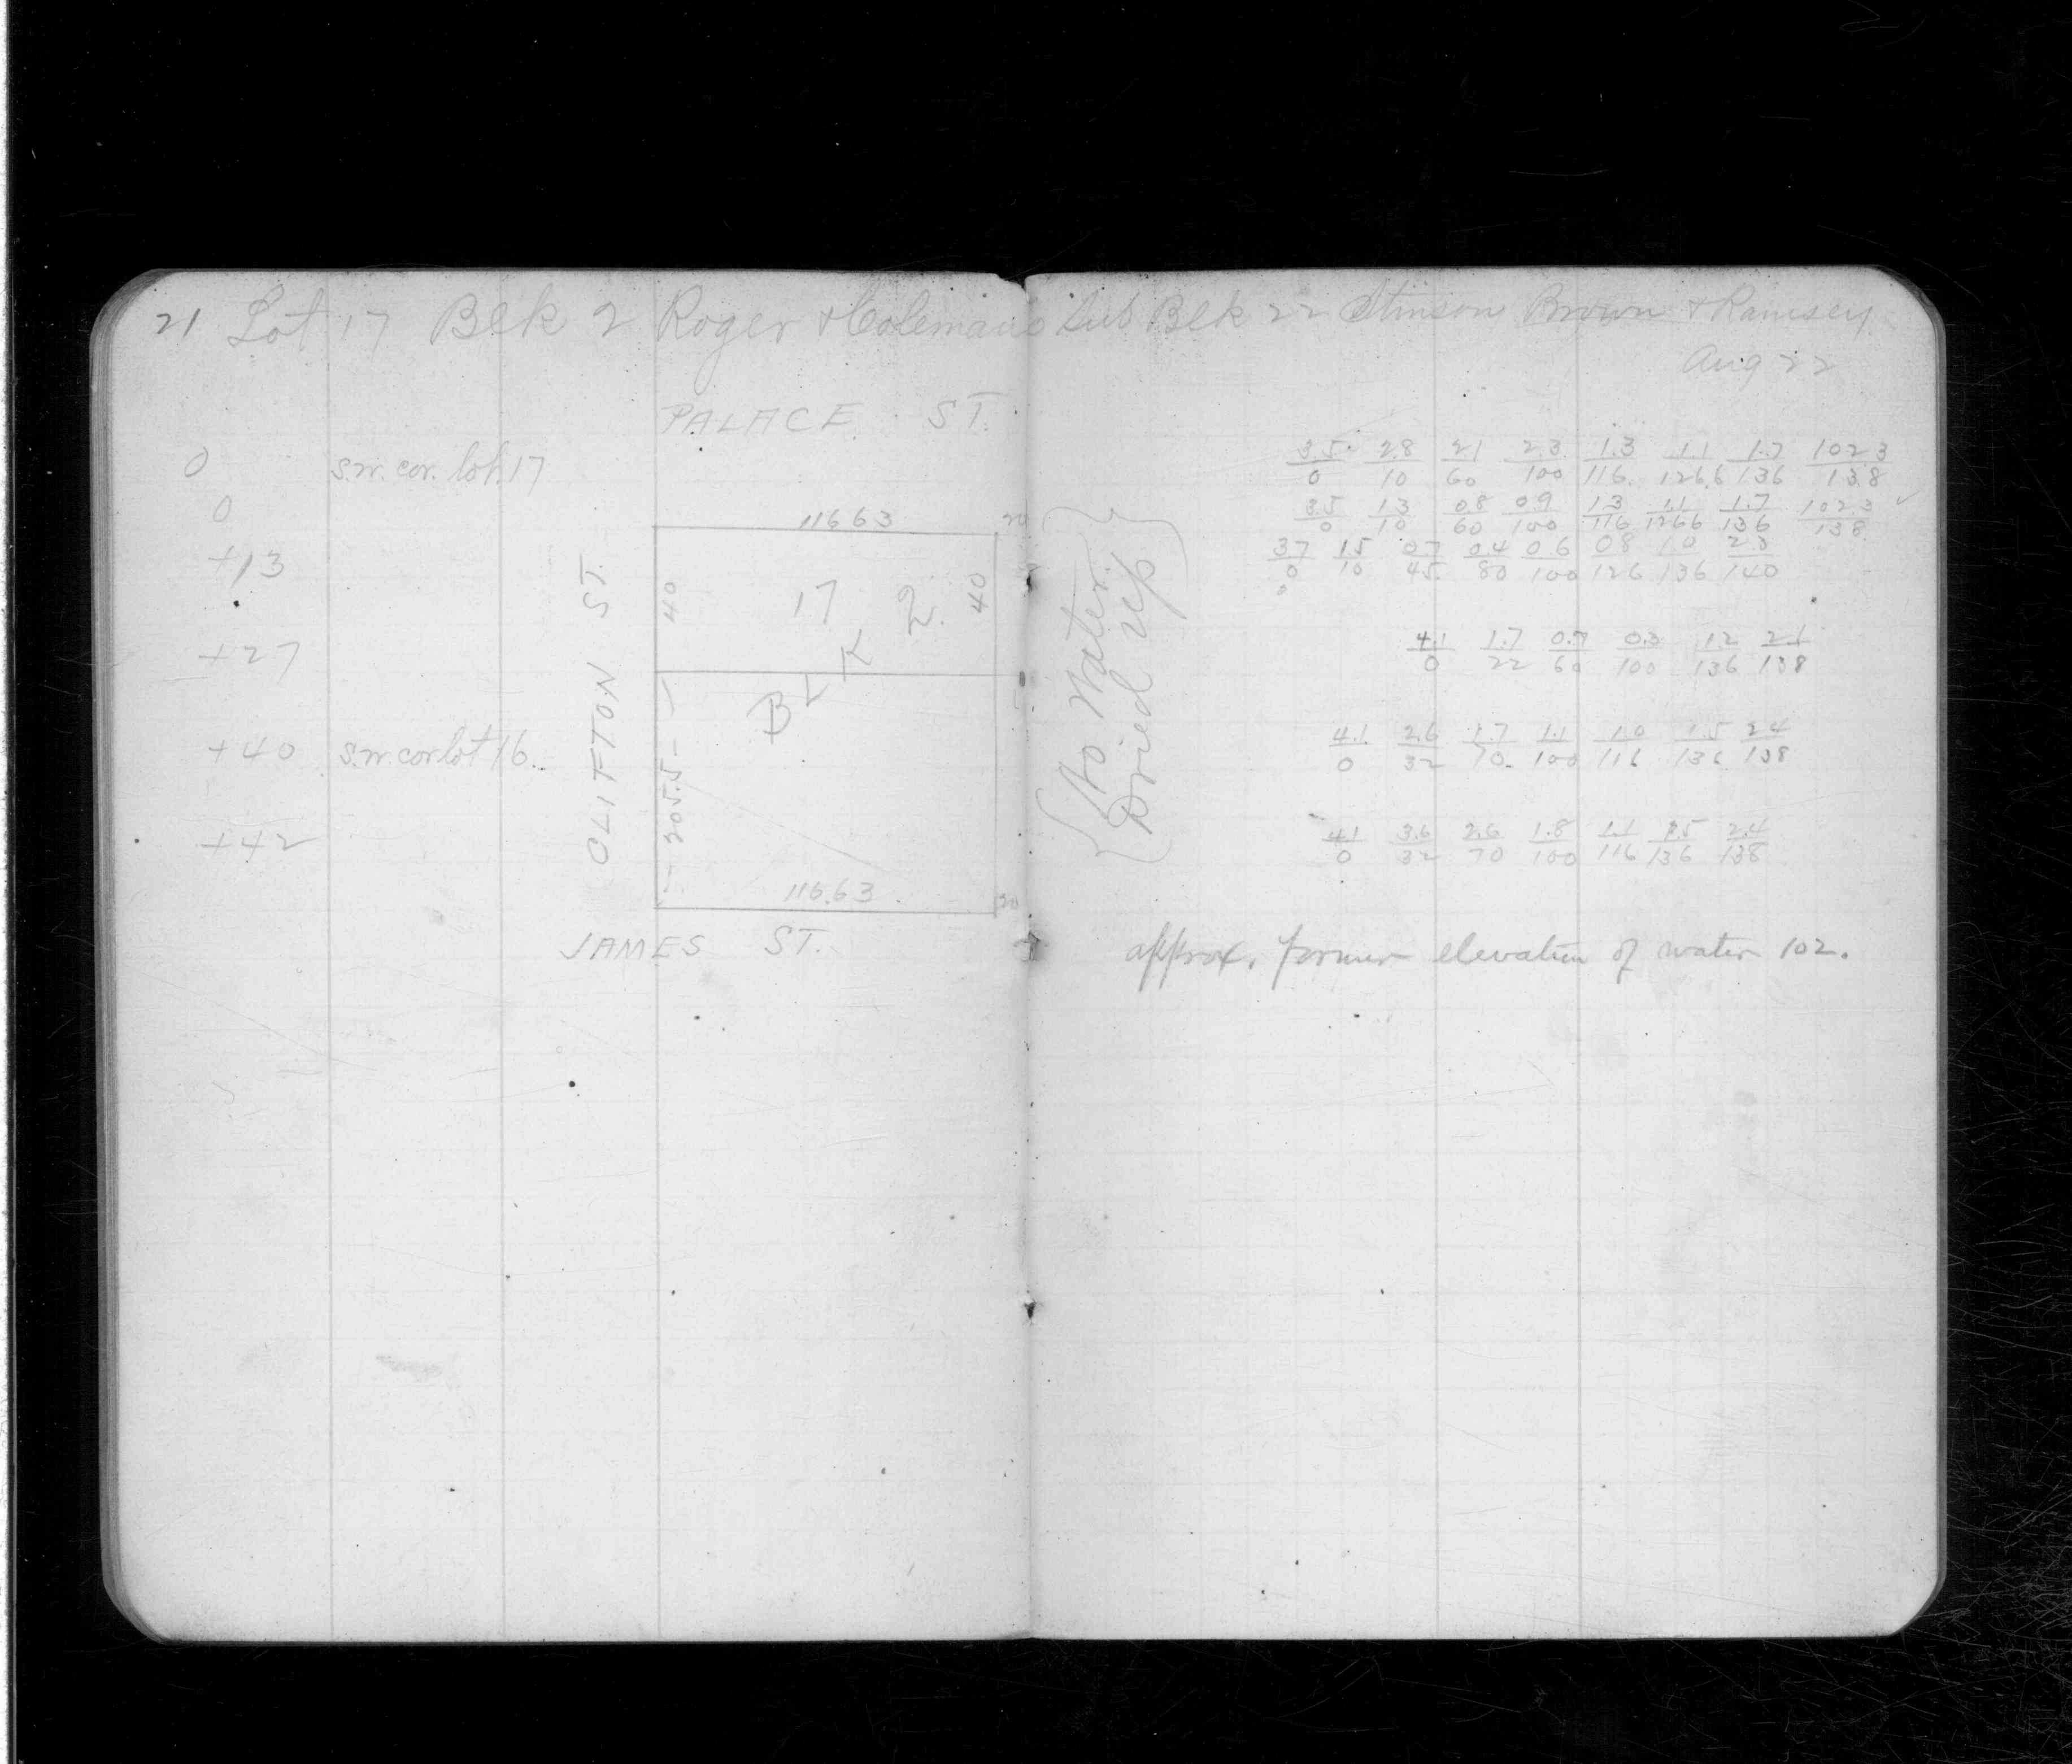 21 Lot 17 Blk 2 Roger & Colemans Sub Blk 22 Stinson Brown & Ramsey
Aug 22
PALACE ST.
0 s.w. cor. lot 17
0
+13
+27
+40 s.w. cor lot 16.
+42
CLIFTON ST.
116.63
20
40
17
2
40
BLK
205.5
116.63
20
JAMES ST.
{No Water.
Dried up}
3.5 2.8 2.1 2.3 1.3 1.1 1.7 102.3
0 10 60 100 116. 126.6 136 138
3.5 1.3 0.8 0.9 1.3 1.1 1.7 102.3
0 10 60 100 116 126.6 136 138
3.7 1.5 0.7 0.4 0.6 0.8 1.0 2.8
0 10 45 80 100 126 136 140
4.1 1.7 0.7 0.3 1.2 2.1
0 22 60 100 136 138
4.1 2.6 1.7 1.1 1.0 1.5 2.4
0 32 70 100 116 136 138
4.1 3.6 2.6 1.8 1.1 1.5 2.4
0 32 70 100 116 136 138
approx. former elevation of water 102.